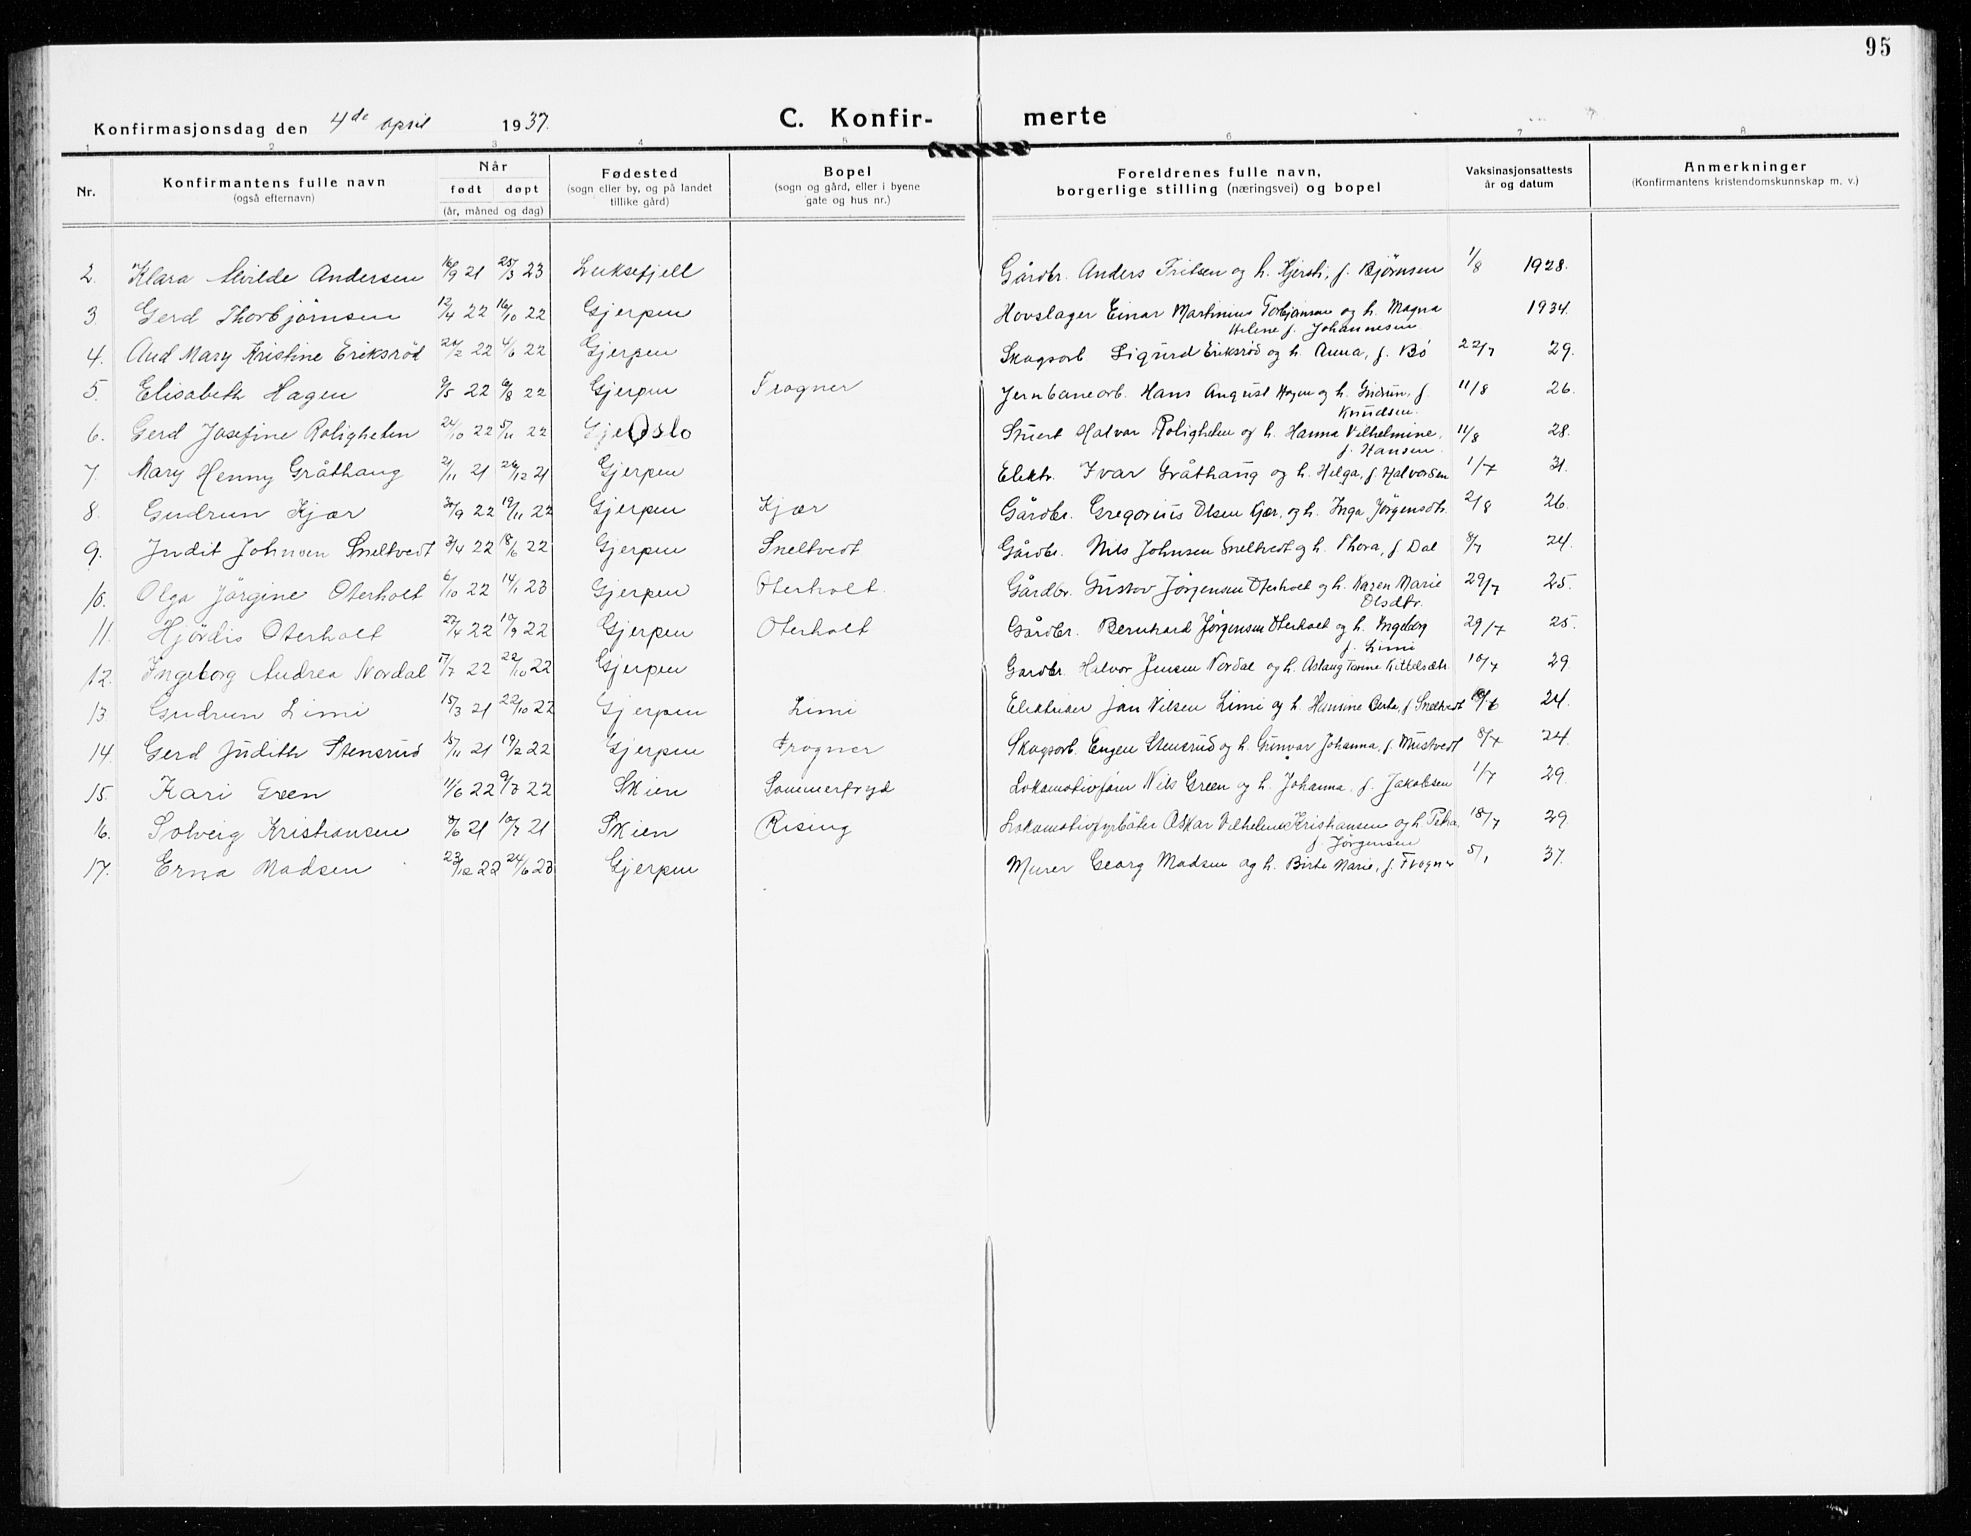 95
Konfirmasjonsdag den 4de april 1937. C. Konfir- merte
1 2 3 4 5 6 7 8
Nr. Konfirmantens fulle navn (også efternavn) Når født døpt (år, måned og dag) Fødested (sogn eller by, og på landet tillike gård) Bopel (sogn og gård, eller i byene gate og hus nr.) Foreldrenes fulle navn, borgerlige stilling (næringsvei) og bopel Vaksinasjonsattests år og datum Anmerkninger (Konfirmantens kristendomskunnskap m. v.)
2. Klara Alvilde Andersen 16/9 21 25/3 23 Luksefjell Gårdbr. Anders Fritsen og h. Kjersti, f. Bjørnsen 1/8 1928.
3. Gerd Thorbjørnsen 12/4 22 16/10 22 Gjerpen Hovslager Einar Martinius Torbjørnsen og h. Magna Helene f. Johannesen 1934.
4. Aud Mary Kristine Eriksrød 24/2 22 4/6 22 Gjerpen Skogsarb Sigurd Eriksrød og h. Anna, f. Bø 22/7 29.
5. Elisabeth Hagen 9/5 22 6/8 22 Gjerpen Frogner Jernbanearb. Hans August Hagen og h. Gudrun, f. Knudsen. 11/8 26.
6. Gerd Josefine Roligheten 24/10 22 5/11 22 Oslo Stuert Halvor Roligheten og h. Hanna Vilhelmine, f. Hansen. 11/8 28.
7. Mary Henny Gråthaug 21/11 21 26/12 21 Gjerpen Elektr. Ivar Gråthaug og h. Helga, f. Halvorsen 1/7 31.
8. Gudrun Kjær 30/9 22 19/11 22 Gjerpen Kjær Gårdbr. Gregorius Olsen Kjær, og h. Inga Jørgensdtr. 2/8 26.
9. Judit Johnsen Sneltvedt 3/4 22 18/6 22 Gjerpen Sneltvedt Gårdbr. Nils Johnsen Sneltvedt og h. Thora, f. Dal 8/7 24.
10. Olga Jørgine Oterholt 6/10 22 14/1 23 Gjerpen Oterholt. Gårdbr. Gustav Jørgensen Oterholt og h. Karen Marie Olsdtr. 29/7 25.
11. Hjørdis Oterholt 27/4 22 10/9 22 Gjerpen Oterholt Gårdbr. Bernhard Jørgensen Oterholt og h. Ingeborg f. Limi 29/7 25.
12. Ingeborg Andrea Nordal 17/7 22 22/10 22 Gjerpen Gardbr. Halvor Jensen Nordal og h. Aslaug Tonine Kittelsdtr. 10/7 29.
13. Gudrun Limi 15/3 21 22/10 22 Gjerpen Limi Elektriker Jan Nilsen Limi og h. Hansine Berta, f. Sneltvedt 24.
14. Gerd Judith Stensrud 15/11 21 19/2 22 Gjerpen Frogner Skogsarb. Engen Stensrud og h. Gunvor Johanna, f. Mustvedt 8/7 24.
15. Kari Green 11/6 22 9/7 22 Skien Sommerfryd Lokomotivførn Nils Green og h. Johanna, f. Jakobsen 1/7 29.
16. Solveig Kristiansen 8/6 21 10/7 21 Skien Rising Lokomotivfyrbøter Oskar Vilhelm Kristiansen og h. Petra f. Jørgensen 18/7 29
17. Erna Madsen 23/12 22 24/6 23 Gjerpen Murer Georg Madsen og h. Birte Marie, f. Frogner 5/1 37.